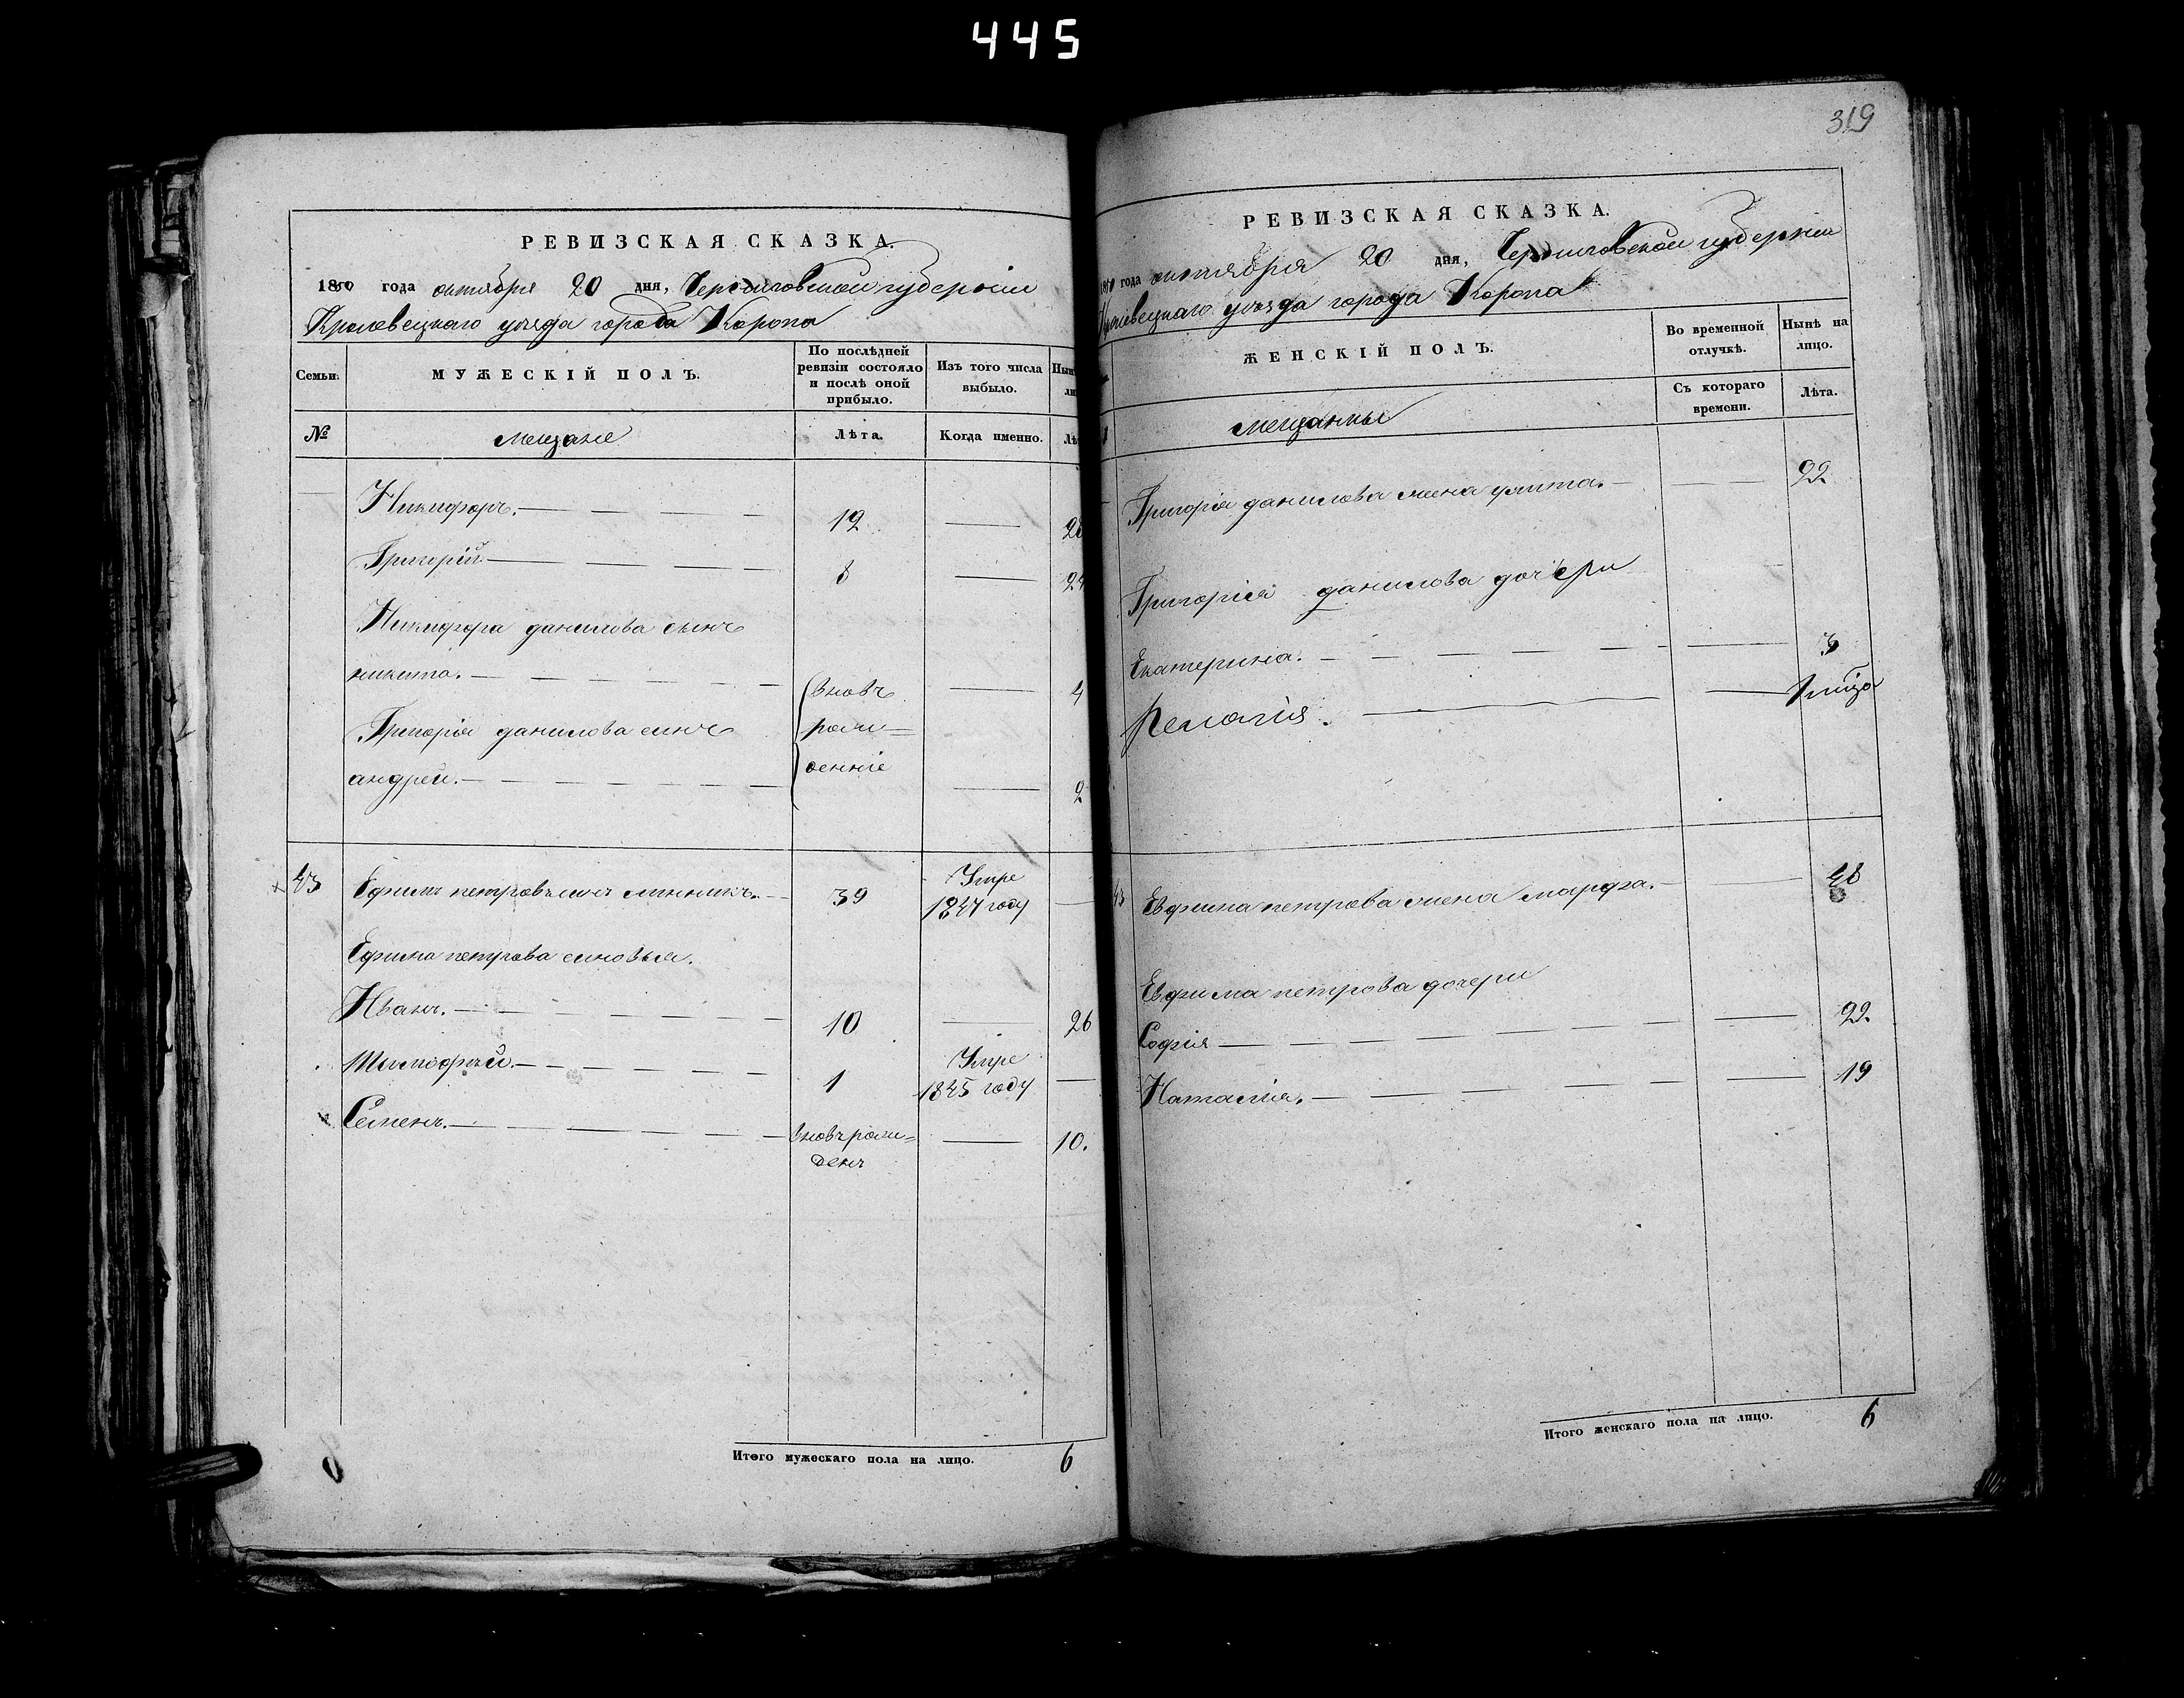 445
РЕВИЗСКАЯ СКАЗКА.
1850 года октября 20 дня, Черниговской губерніи
Кролевецкаго уѣзда города Коропа
Семьи.
МУЖЕСКІЙ ПОЛЪ.
По послѣдней ревизіи состояло и послѣ оной прибыло.
Изъ того числа выбыло.
№
мещане
Лѣта.
Когда именно.
Никифоръ. 12
Григорій 8
Никифора данилова сынъ
никита. 4
Григорія данилова синъ
андрей. 2
вновъ
рож
денніе
43 Ефимъ петровъ синъ 39 Умре 1847 году
Ефима петрова синовья.
Иванъ. 10 26
Тимофѣй. 1 Умре 1845 году
Семенъ. вновъ рож=
денъ 10.
Итого мужескаго пола на лицо. 6
319
РЕВИЗСКАЯ СКАЗКА.
1850 года октября 20 дня, Черниговской губерніи
Кролевецкаго уѣзда города Коропа
ЖЕНСКІЙ ПОЛЪ.
Во временной отлучкѣ.
Нынѣ на лицо.
Съ котораго времени.
Лѣта.
мещанки
Григорія данилова жена улита. 22
Григорія данилова дочери
Екатерина. 3
Пелагія.
43 Евфима петрова жена марфа. 48
Евфима петрова дочери
Софія 22.
Наталія. 19
Итого женскаго пола на лицо. 6